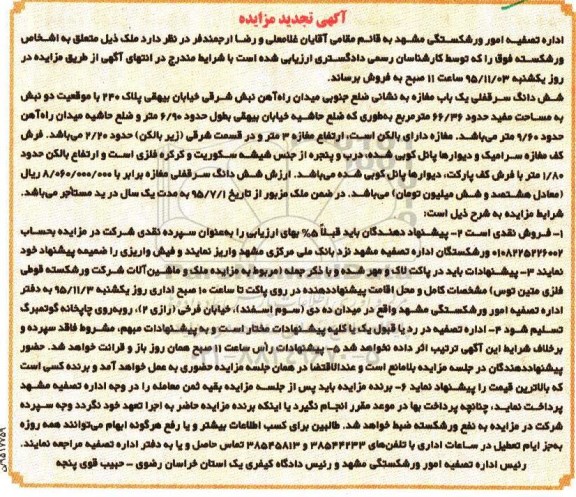 آگهی تجدید مزایده
اداره تصفیه امور ورشکستگی مشهد به قائم مقامی آقایان غلامعلی و رضا ارجمندفر در نظر دارد ملک ذیل متعلق به اشخاص
ورشکسته فوق را که توسط کارشناسان رسمی دادگستری ارزیابی شده است با شرایط مندرج در انتهای آگهی از طریق مزایده در
روز یکشنبه ۹۵/۱۱/۰۳ ساعت ۱۱ صبح به فروش برساند.
شش دانگ سرقفلی یک باب مغازه به نشانی ضلع جنوبی میدان راه‌آهن نبش شرقی خیابان بیهقی پلاک ۲۴۰ با موقعیت دو نبش
به مساحت مفید حدود ۶۶/۳۶ مترمربع به‌طوری که ضلع حاشیه خیابان بیهقی بطول حدود ۶/۹۰ متر و ضلع حاشیه میدان راه‌آهن
حدود ۹/۶۰ متر می‌باشد. مغازه دارای بالکن است، ارتفاع مغازه ۳ متر و در قسمت شرقی (زیر بالکن) حدود ۲/۲۰ می‌باشد. فرش
کف مغازه سرامیک و دیوارها پانل کوبی شده، درب و پنجره از جنس شیشه سکوریت و کرکره فلزی است و ارتفاع بالکن حدود
۱/۸۰ متر با فرش کف پارکت، دیوارها پانل کوبی شده می‌باشد. ارزش شش دانگ سرقفلی مغازه برابر با ۸/۰۶۰/۰۰۰/۰۰۰ ریال
(معادل هشتصد و شش میلیون تومان) می‌باشد. در ضمن ملک مزبور از تاریخ ۹۵/۷/۱ به مدت یک سال در ید مستأجر می‌باشد.
شرایط مزایده به شرح ذیل است:
۱- فروش نقدی است ۲- پیشنهاد دهندگان باید قبلاً ۵% بهای ارزیابی را به‌عنوان سپرده نقدی شرکت در مزایده بحساب
۰۱۰۸۲۲۵۲۲۶۰۰۲ ورشکستگان اداره تصفیه مشهد نزد بانک ملی مرکزی مشهد واریز نمایند و فیش واریزی را ضمیمه پیشنهاد خود
نمایند ۳- پیشنهادات باید در پاکت لاک و مهر شده و با ذکر جمله (مربوط به مزایده ملکی و ماشین‌آلات شرکت ورشکسته قوطی
فلزی متین توس) مشخصات کامل و محل اقامت پیشنهاددهنده در روی پاکت تا ساعت ۱۰ صبح اداری روز یکشنبه ۹۵/۱۱/۳ به دفتر
اداره تصفیه امور ورشکستگی مشهد واقع در میدان ده دی (سوم اسفند)، خیابان فرخی (رازی ۲)، روبه‌روی چاپخانه گوتمبرگ
تسلیم شود ۴- اداره تصفیه در رد یا قبول یک یا کلیه پیشنهادات مختار است و به پیشنهادات مبهم، مشروط فاقد سپرده و
برخلاف شرایط این آگهی ترتیب اثر داده نخواهد شد ۵- پیشنهادات رأس ساعت ۱۱ صبح همان روز باز و قرائت خواهد شد. حضور
پیشنهاددهندگان در جلسه مزایده بلامانع است و عندالاقتضا در همان جلسه مزایده حضوری به عمل خواهد آمد و برنده کسی است
که بالاترین قیمت را پیشنهاد نماید ۶- برنده مزایده باید پس از جلسه مزایده بقیه ثمن معامله را در وجه اداره تصفیه مشهد
پرداخت نمایند، چنانچه پرداخت بها در موعد مقرر انجام نگیرد یا اینکه برنده مزایده حاضر به اجرا تعهد خود نگردد وجه سپرده
شرکت در مزایده به نفع ورشکسته ضبط خواهد شد. طالبین برای کسب اطلاعات بیشتر و یا رفع هرگونه ابهام می‌توانند همه روزه
به‌جز ایام تعطیل در ساعات اداری با تلفن‌های ۳۸۵۴۴۲۳۳ و ۳۸۵۴۵۸۱۳ تماس حاصل و یا به دفتر اداره تصفیه مراجعه نمایند.
رئیس اداره تصفیه امور ورشکستگی مشهد و رئیس دادگاه کیفری یک استان خراسان رضوی – حبیب قوی پنجه